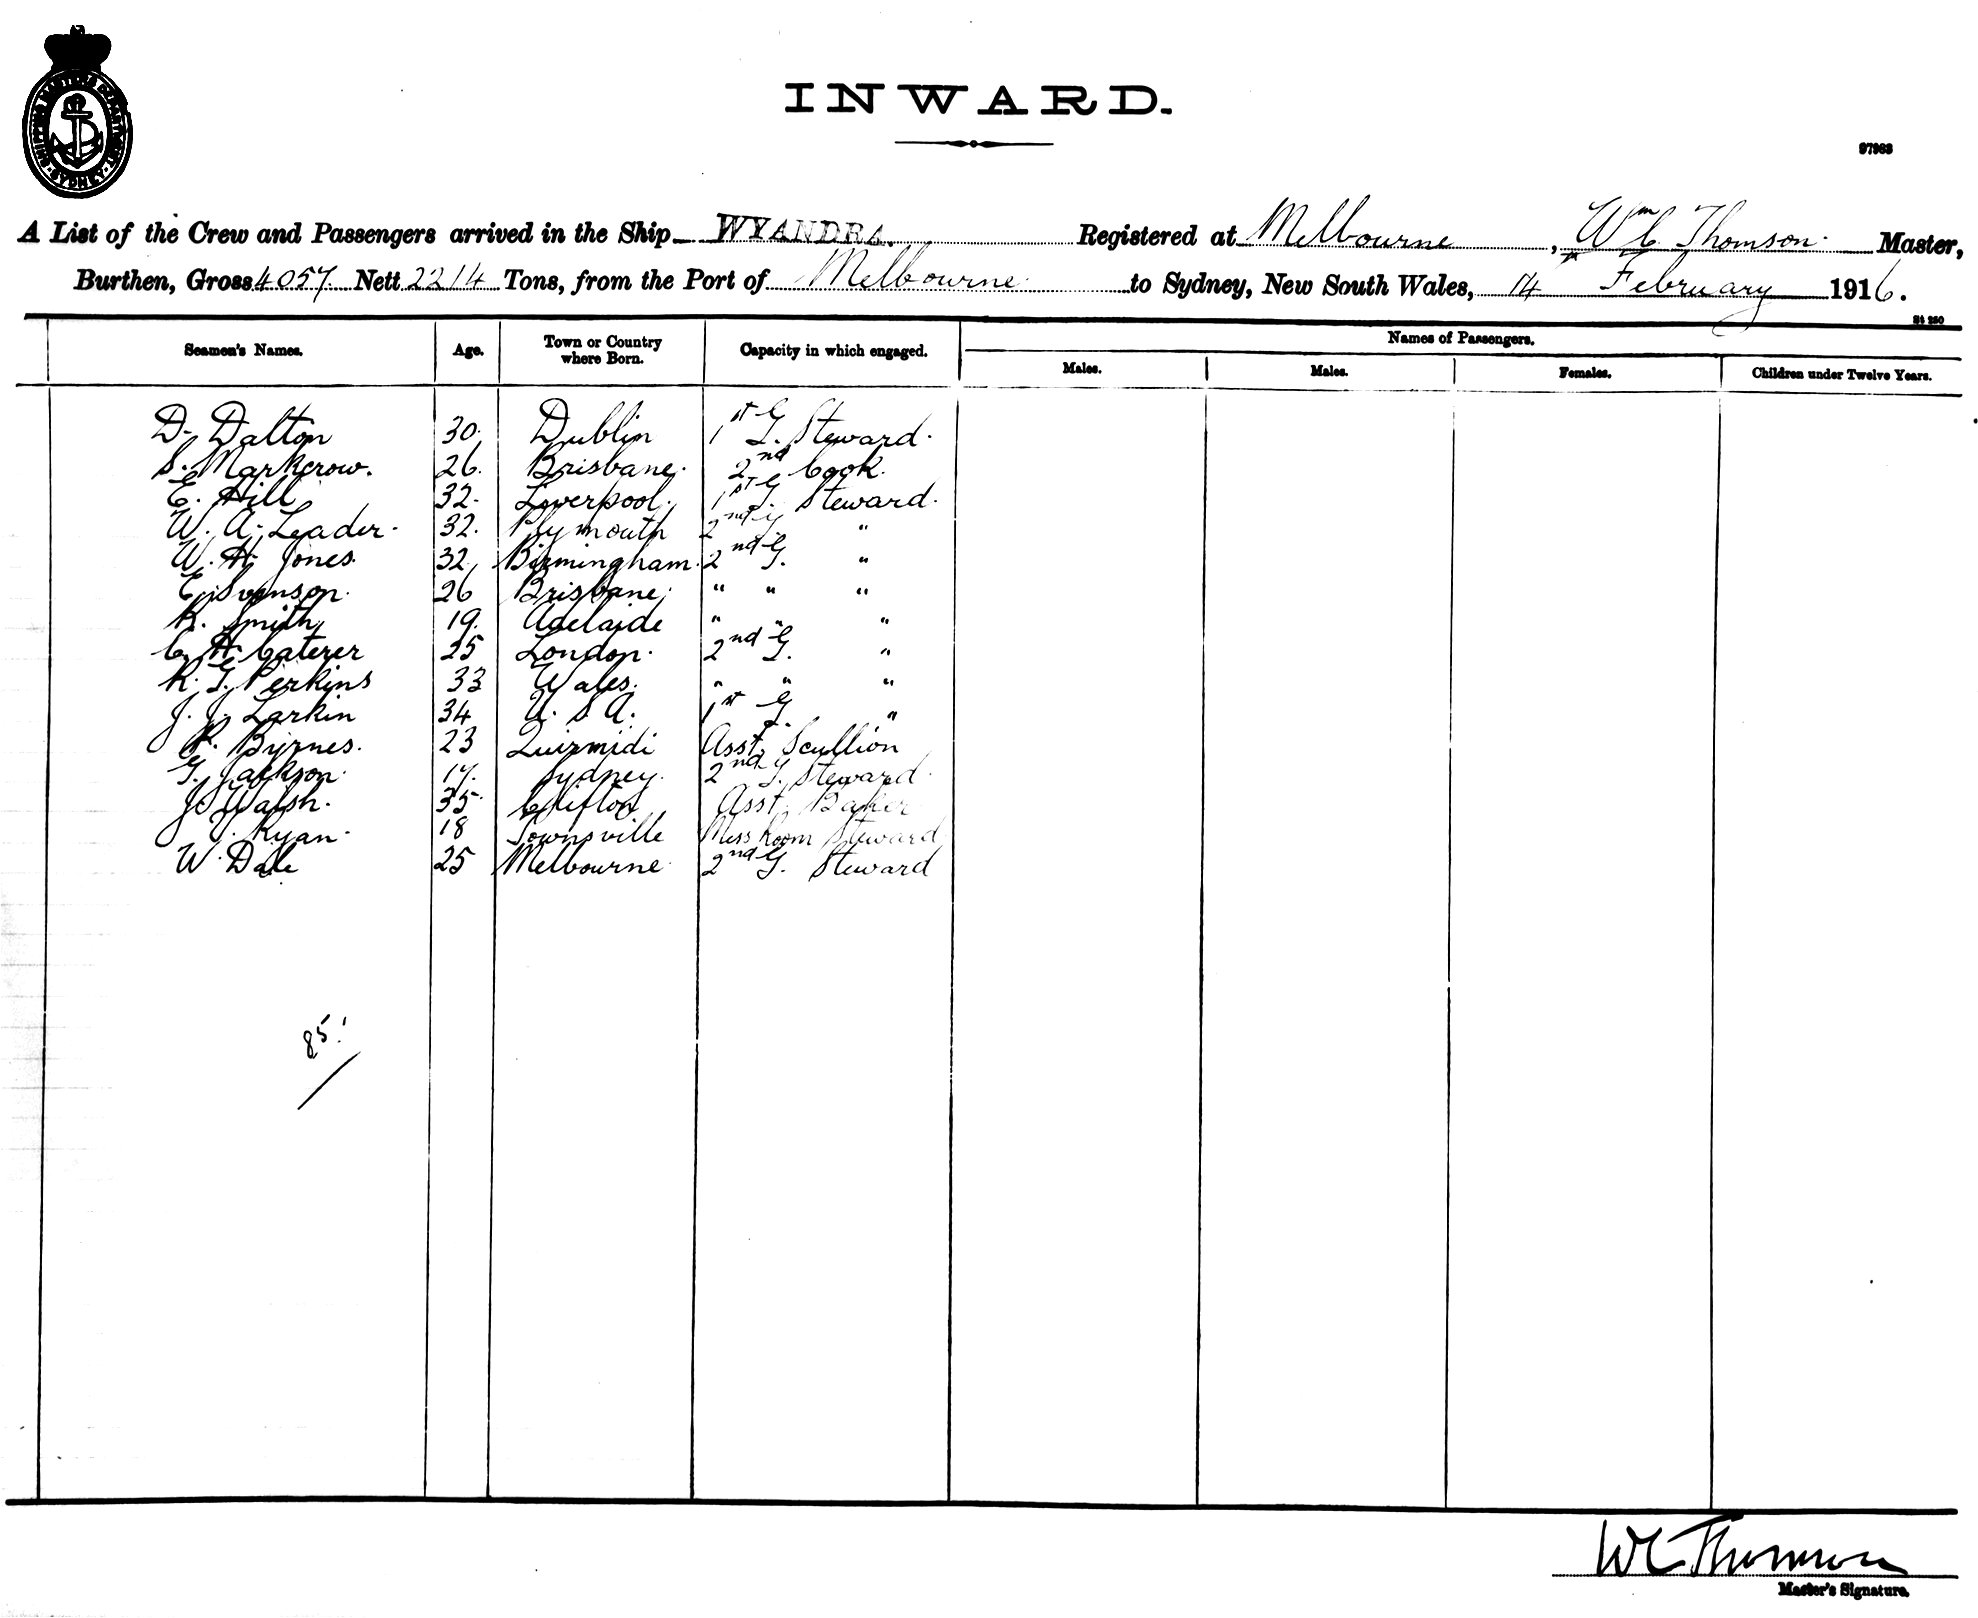 SHIPPING MASTERS DEPARTMENT SYDNEY
INWARD.
97963
A List of the Crew and Passengers arrived in the Ship WYANDRA. Registered at Melbourne, Wm C Thomson. Master,
Burthen, Gross 4057. Nett 2214 Tons, from the Port of Melbourne to Sydney, New South Wales, 14 February 1916.
St 250
Seamen's Names. Age. Town or Country where Born. Capacity in which engaged. Names of Passengers.
Males. Males. Females. Children under Twelve Years.
D. Dalton 30. Dublin 1st G. Steward.
S. Markcrow. 26. Brisbane. 2nd Cook.
E. Hill 32. Liverpool. 1st G. Steward.
W. A. Leader. 32. Plymouth 2nd G "
W. H. Jones. 32. Birmingham. 2nd G. "
E. Svenson. 26 Brisbane. " " "
R. Smith 19. Adelaide " " "
C. H. Caterer 25 London. 2nd G. "
R. G. Perkins 33 Wales. " " "
J. J. Larkin 34 U. S. A. 1st G. "
P. Byrnes. 23 Asst. Scullion
G. Jackson. 17. Sydney. 2nd G. Steward.
J. Walsh. 35. Clifton Asst. Baker
J. Ryan. 18 Townsville Mess Room Steward
W. Dale 25 Melbourne 2nd G. Steward
85.
WC Thomson
Master's Signature.